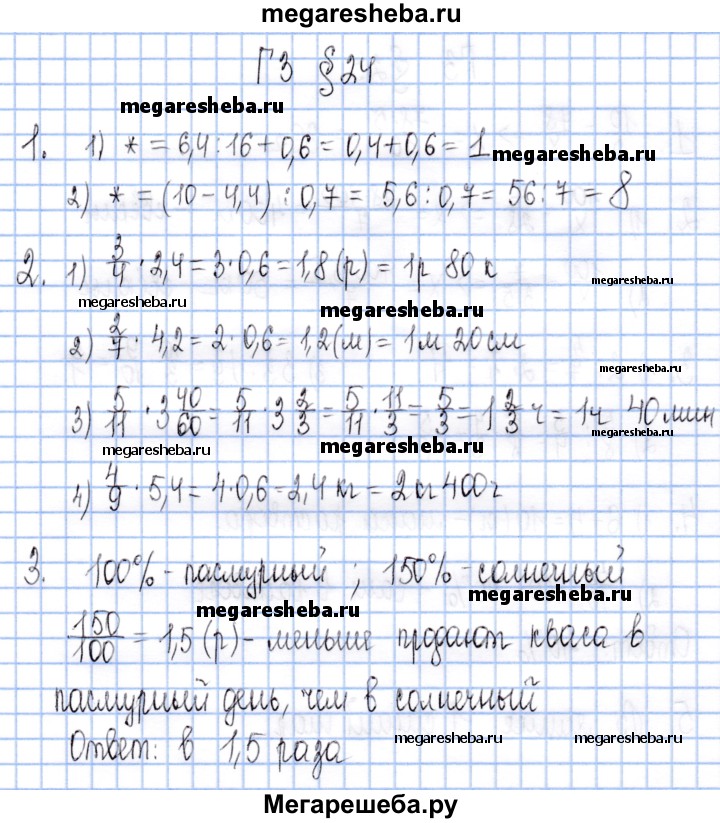 megaresheba.ru
ГЗ §24
megaresheba.ru
1. 1) * = 6,4:16+0,6 = 0,4+0,6 = 1
megaresheba.ru
2) * = (10-4,4) : 0,7 = 5,6:0,7 = 56:7 = 8
2. 1) 3/4 · 2,4 = 3·0,6 = 1,8 (р) = 1р 80 к
megaresheba.ru
megaresheba.ru
megaresheba.ru
2) 2/7 · 4,2 = 2·0,6 = 1,2(м) = 1м 20см
megaresheba.ru
3) 5/11 · 3 40/60 = 5/11 · 3 2/3 = 5/11 · 11/3 = 5/3 = 1 2/3 ч = 1ч 40мин
megaresheba.ru
megaresheba.ru
4) 4/9 · 5,4 = 4·0,6 = 2,4 кг = 2кг 400г
3. 100% - пасмурный ; 150% - солнечный
megaresheba.ru
megaresheba.ru
150/100 = 1,5 (р) - меньше продают кваса в
пасмурный день, чем в солнечный
Ответ: в 1,5 раза
megaresheba.ru
megaresheba.ru
Мегарешеба.ру